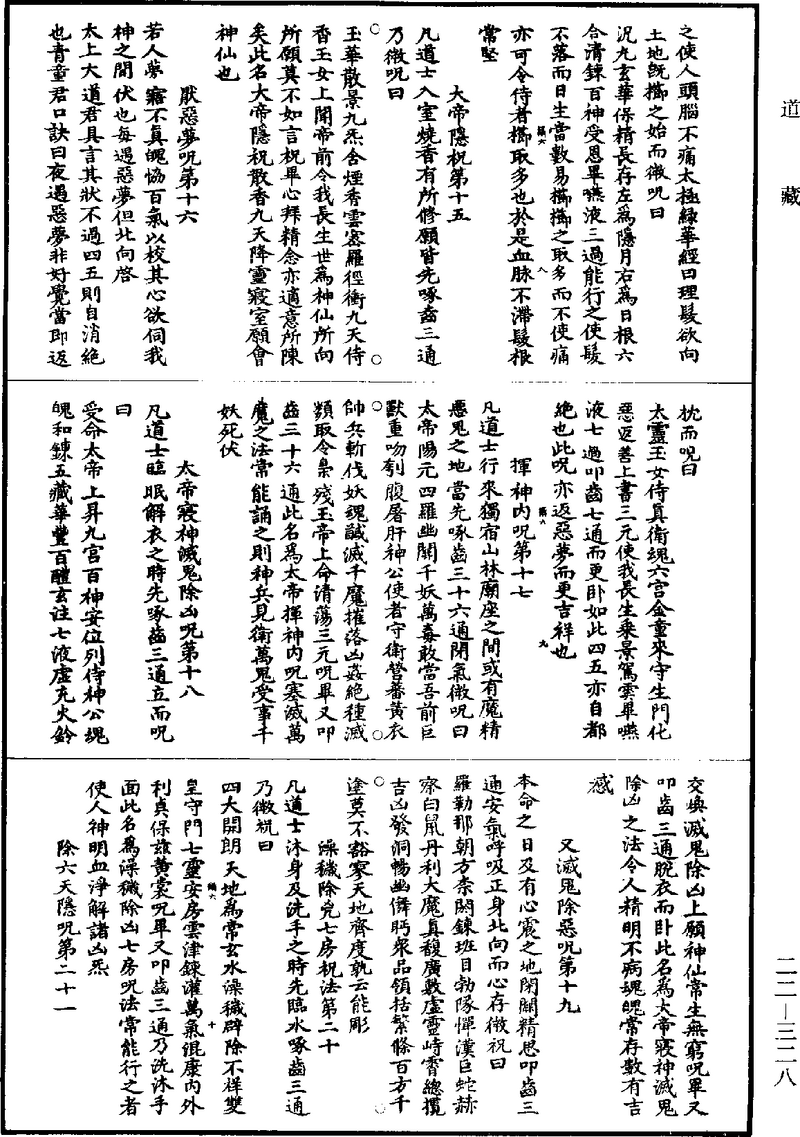 道藏
之使人頭腦不痛太極綠華經曰理髮欲向
土地既櫛之始而微呪曰
泥九玄華保精長存左為隱月右為日根六
合清鍊百神受恩畢嚥液三過能行之使髮
不落而日生當數易櫛櫛之取多而不使痛
亦可令侍者櫛取多也於是血脉不滯髮根
常堅
大帝隱祝第十五
凡道士入室燒香有所修願皆先啄齒三通
乃微呪曰
玉華散景九炁含煙香雲密羅徑衝九天侍
香玉女上聞帝前令我長生世為神仙所向
所願莫不如言祝畢心拜精念亦適意所陳
矣此名大帝隱祝散香九天降靈寢室願會
神仙也
厭惡夢呪第十六
若人夢寤不真魄協百氣以校其心欲伺我
神之間伏也每遇惡夢但北向啓
太上大道君具言其狀不過四五則自消絕
也青童君口訣曰夜遇惡夢非好覺當即返
枕而呪曰
太靈玉女侍真衛魂六宮金童來守生門化
惡返善上書三元使我長生乘景駕雲畢嚥
液七過叩齒七通而更卧如此四五亦自都
絕也此呪亦返惡夢而更吉祥也
揮神內呪第十七
凡道士行來獨宿山林廟座之間或有魔精
惡鬼之地當先啄齒三十六通閉氣微呪曰
太帝陽元四羅幽關千妖萬毒敢當吾前巨
獸重吻刳腹屠肝神公使者守衛營蕃黃衣
帥兵斬伐妖魂馘滅千魔摧落凶姦絕種滅
類取令梟殘玉帝上命清蕩三元呪畢又叩
齒三十六通此名為太帝揮神內呪塞滅萬
魔之法常能誦之則神兵見衛萬鬼受事千
妖死伏
太帝寢神滅鬼除凶呪第十八
凡道士臨眠解衣之時先啄齒三通立而呪
曰
受命太帝上昇九宮百神安位列侍神公魂
魄和鍊五藏華豐百醴玄注七液虛充火鈴
交喚滅鬼除凶上願神仙常生無窮呪畢又
叩齒三通脫衣而卧此名為大帝寢神滅鬼
除凶之法令人精明不病魂魄常存數有吉
感
又滅鬼除惡呪第十九
本命之日及有心震之地閉關精思叩齒三
通安氣呼吸正身北向而心存微祝曰
羅勒那朝方柰闕鍊班目勃隊憚漢巨蛇赫
察白鼠丹利大魔真馥廣敷虛靈峙霄總攬
吉凶發洞暢幽儛眄衆品領括繁條百方千
塗莫不豁寥天地齊度孰云能彫
澡穢除兇七房祝法第二十
凡道士沐身及洗手之時先臨水啄齒三通
乃微祝曰
四大開朗天地為常玄水澡穢辟除不祥雙
皇守門七靈安房雲津鍊灌萬氣混康內外
利真保茲黃裳呪畢又叩齒三通乃洗沐手
面此名為澡穢除凶七房呪法常能行之者
使人神明血淨解諸凶炁
除六天隱呪第二十一
二二—三二八